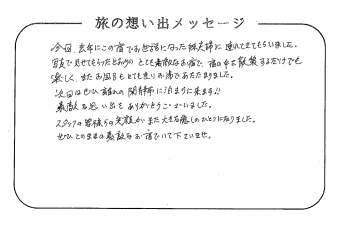 旅の想い出メッセージ
今回、去年にこの宿でお世話になった姉夫婦に連れてきてもらいました。
写真で見せてもらったとおりの とても素敵なお宿で、宿の中を散策するだけでも
楽しく、またお風呂もとても良りお湯であたたまりました。
次回はぜひ離れの 閑静 に泊まりに来ます!!
素敵な思い出を ありがとうございました。
スタッフの皆様方の笑顔が また大きな癒しのひとつになりました。
ぜひこのままの素敵なお宿でいて下さいませ。